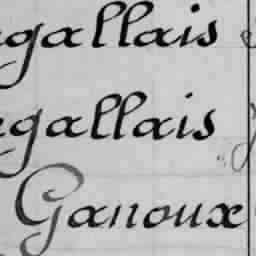 egallais
egallais
Ganoux